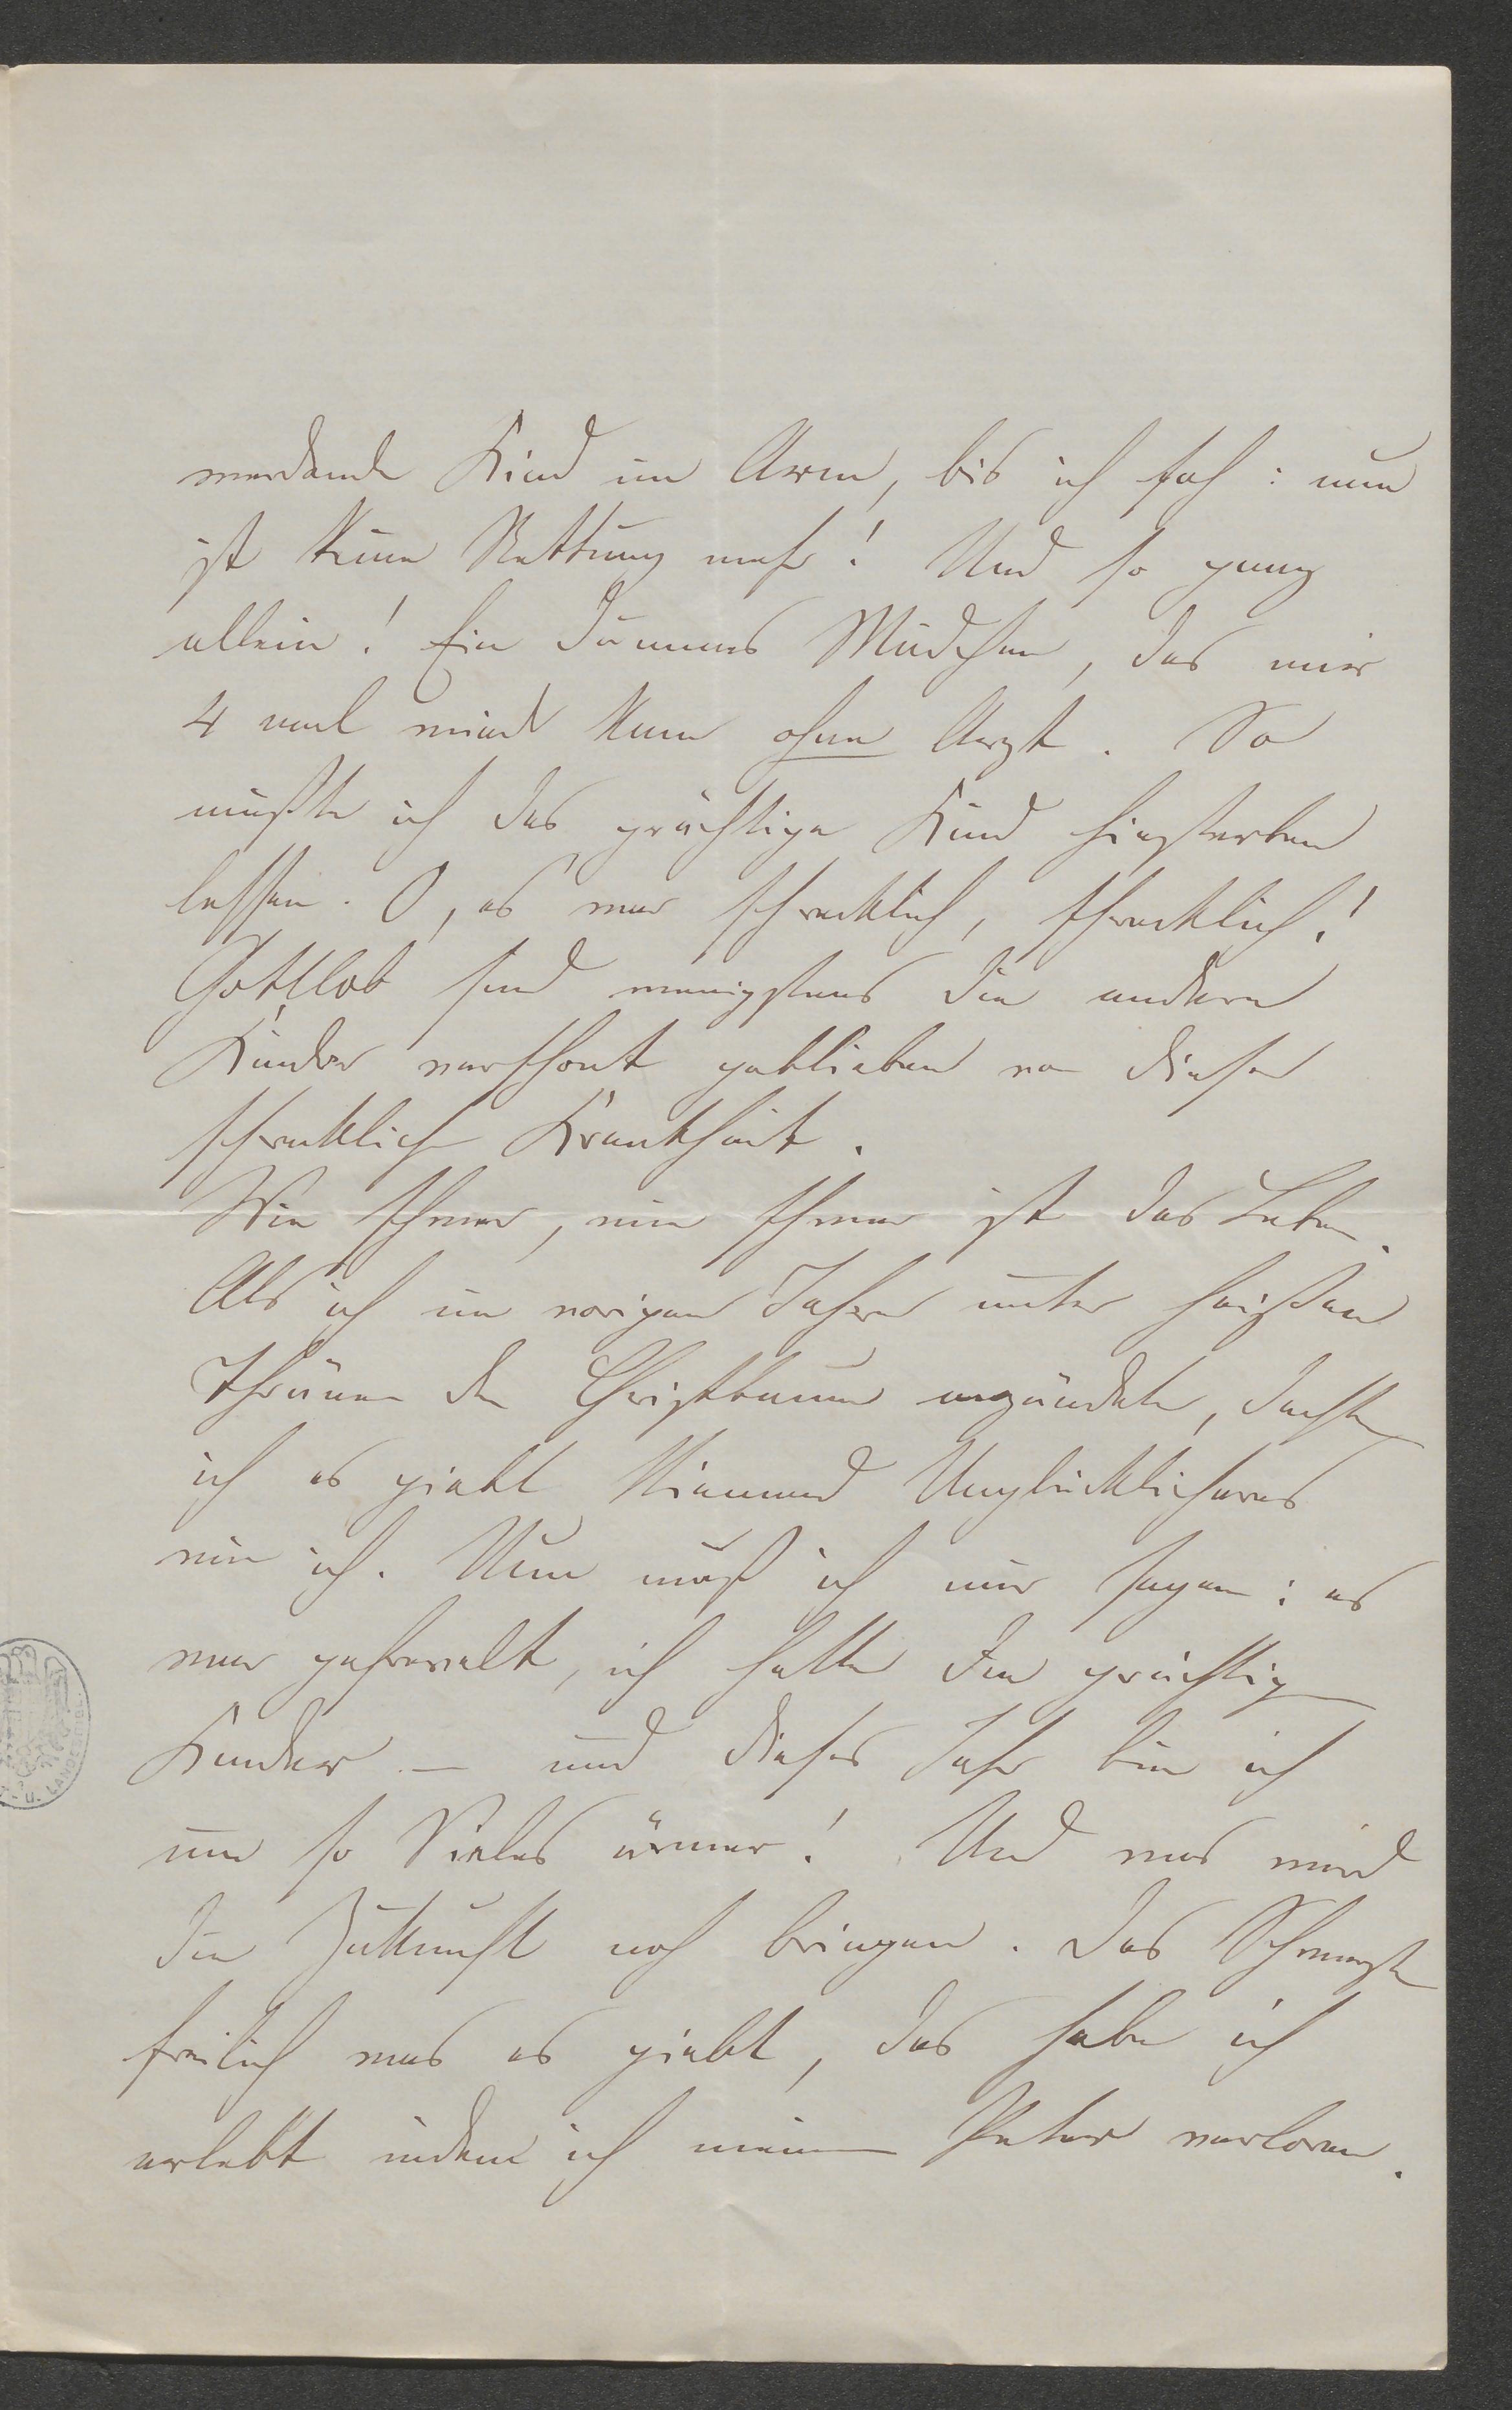 werdende Kind im Arm, bis ich sah: nun
ist keine Rettung mehr! Und so ganz
allein! Ein dummes Mädchen, das mir
4 mal wieder kam ohne Arzt. So
mußte ich das prächtige Kind hinsterben
lassen. O, es war schrecklich, schrecklich!
Gottlob sind wenigstens die andern
Kinder verschont geblieben von dieser
schrecklichen Krankheit.
Wie schwer, wie schwer ist das Leben.
Als ich im vorigen Jahre unter heißen
Thränen den Christbaum anzündete, dachte
ich es giebt Niemand Unglücklicheres
wie ich. Nun muß ich mir sagen: es
war gefrevelt, ich hatte drei prächtige
Kinder – und dieses Jahr bin ich
um so Vieles ärmer! Und was wird
die Zukunft noch bringen. Das Schwerste
freilich was es giebt, das habe ich
erlebt indem ich meinen Peter verloren.
U. LANDESBIBL.